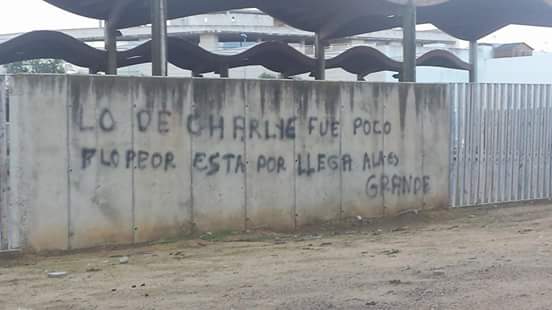 LO DE CHARLYE FUE POCO
FLOPEOR ESTA POR LLEGA ALAES
GRANDE